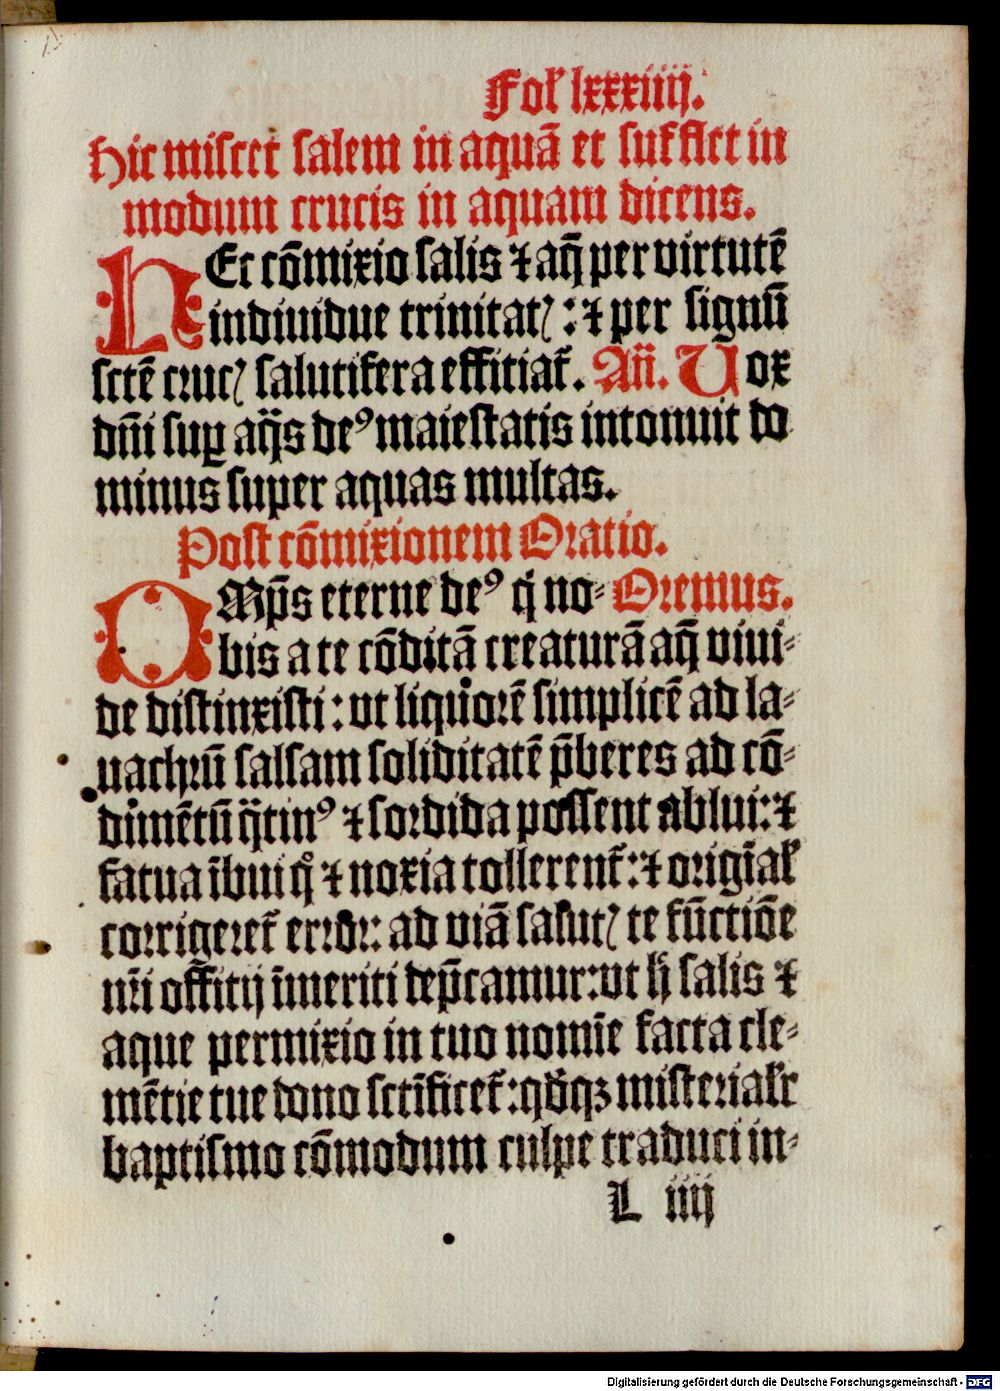 Fol̛ lxxxiiij.
Hic miscet salem in aquã et sufflet in
modum crucis in aquam dicens.
HEc cõmixio salis ⁊ aq̃ per virtutẽ
indiuidue trinitatꝭ: ⁊ per signũ
sctẽ crucꝭ salutifera effitiat̃. An̄. Uox
dñi suꝑ aq̃s deꝰ maiestatis intonuit do
minus super aquas multas.
Post cõmixionem Oratio.
OMp̄s eterne deꝰ q̄ no⸗ Oremus.
bis a te cõditã creaturã aq̃ viui⸗
de distinxisti: vt liquorẽ simplicẽ ad la⸗
uachrũ salsam soliditatẽ p̄beres ad cõ⸗
dimẽtũ q̃tinꝰ ⁊ sordida possent ablui: ⁊
fatua ĩbui q̊ ⁊ noxia tollerent̃: ⁊ origĩal̛
corrigeret̃ error: ad viã salutꝭ te fũctiõe
nr̃i offitij ĩmeriti dep̄camur: vt h̃ salis ⁊
aque permixio in tuo nomĩe facta cle⸗
mẽtie tue dono sctĩficet̃: qđqꝫ misterial̛r
baptismo cõmodum culpe traduci in⸗
L iiij
Digitalisierung gefördert durch die Deutsche Forschungsgemeinschaft - DFG